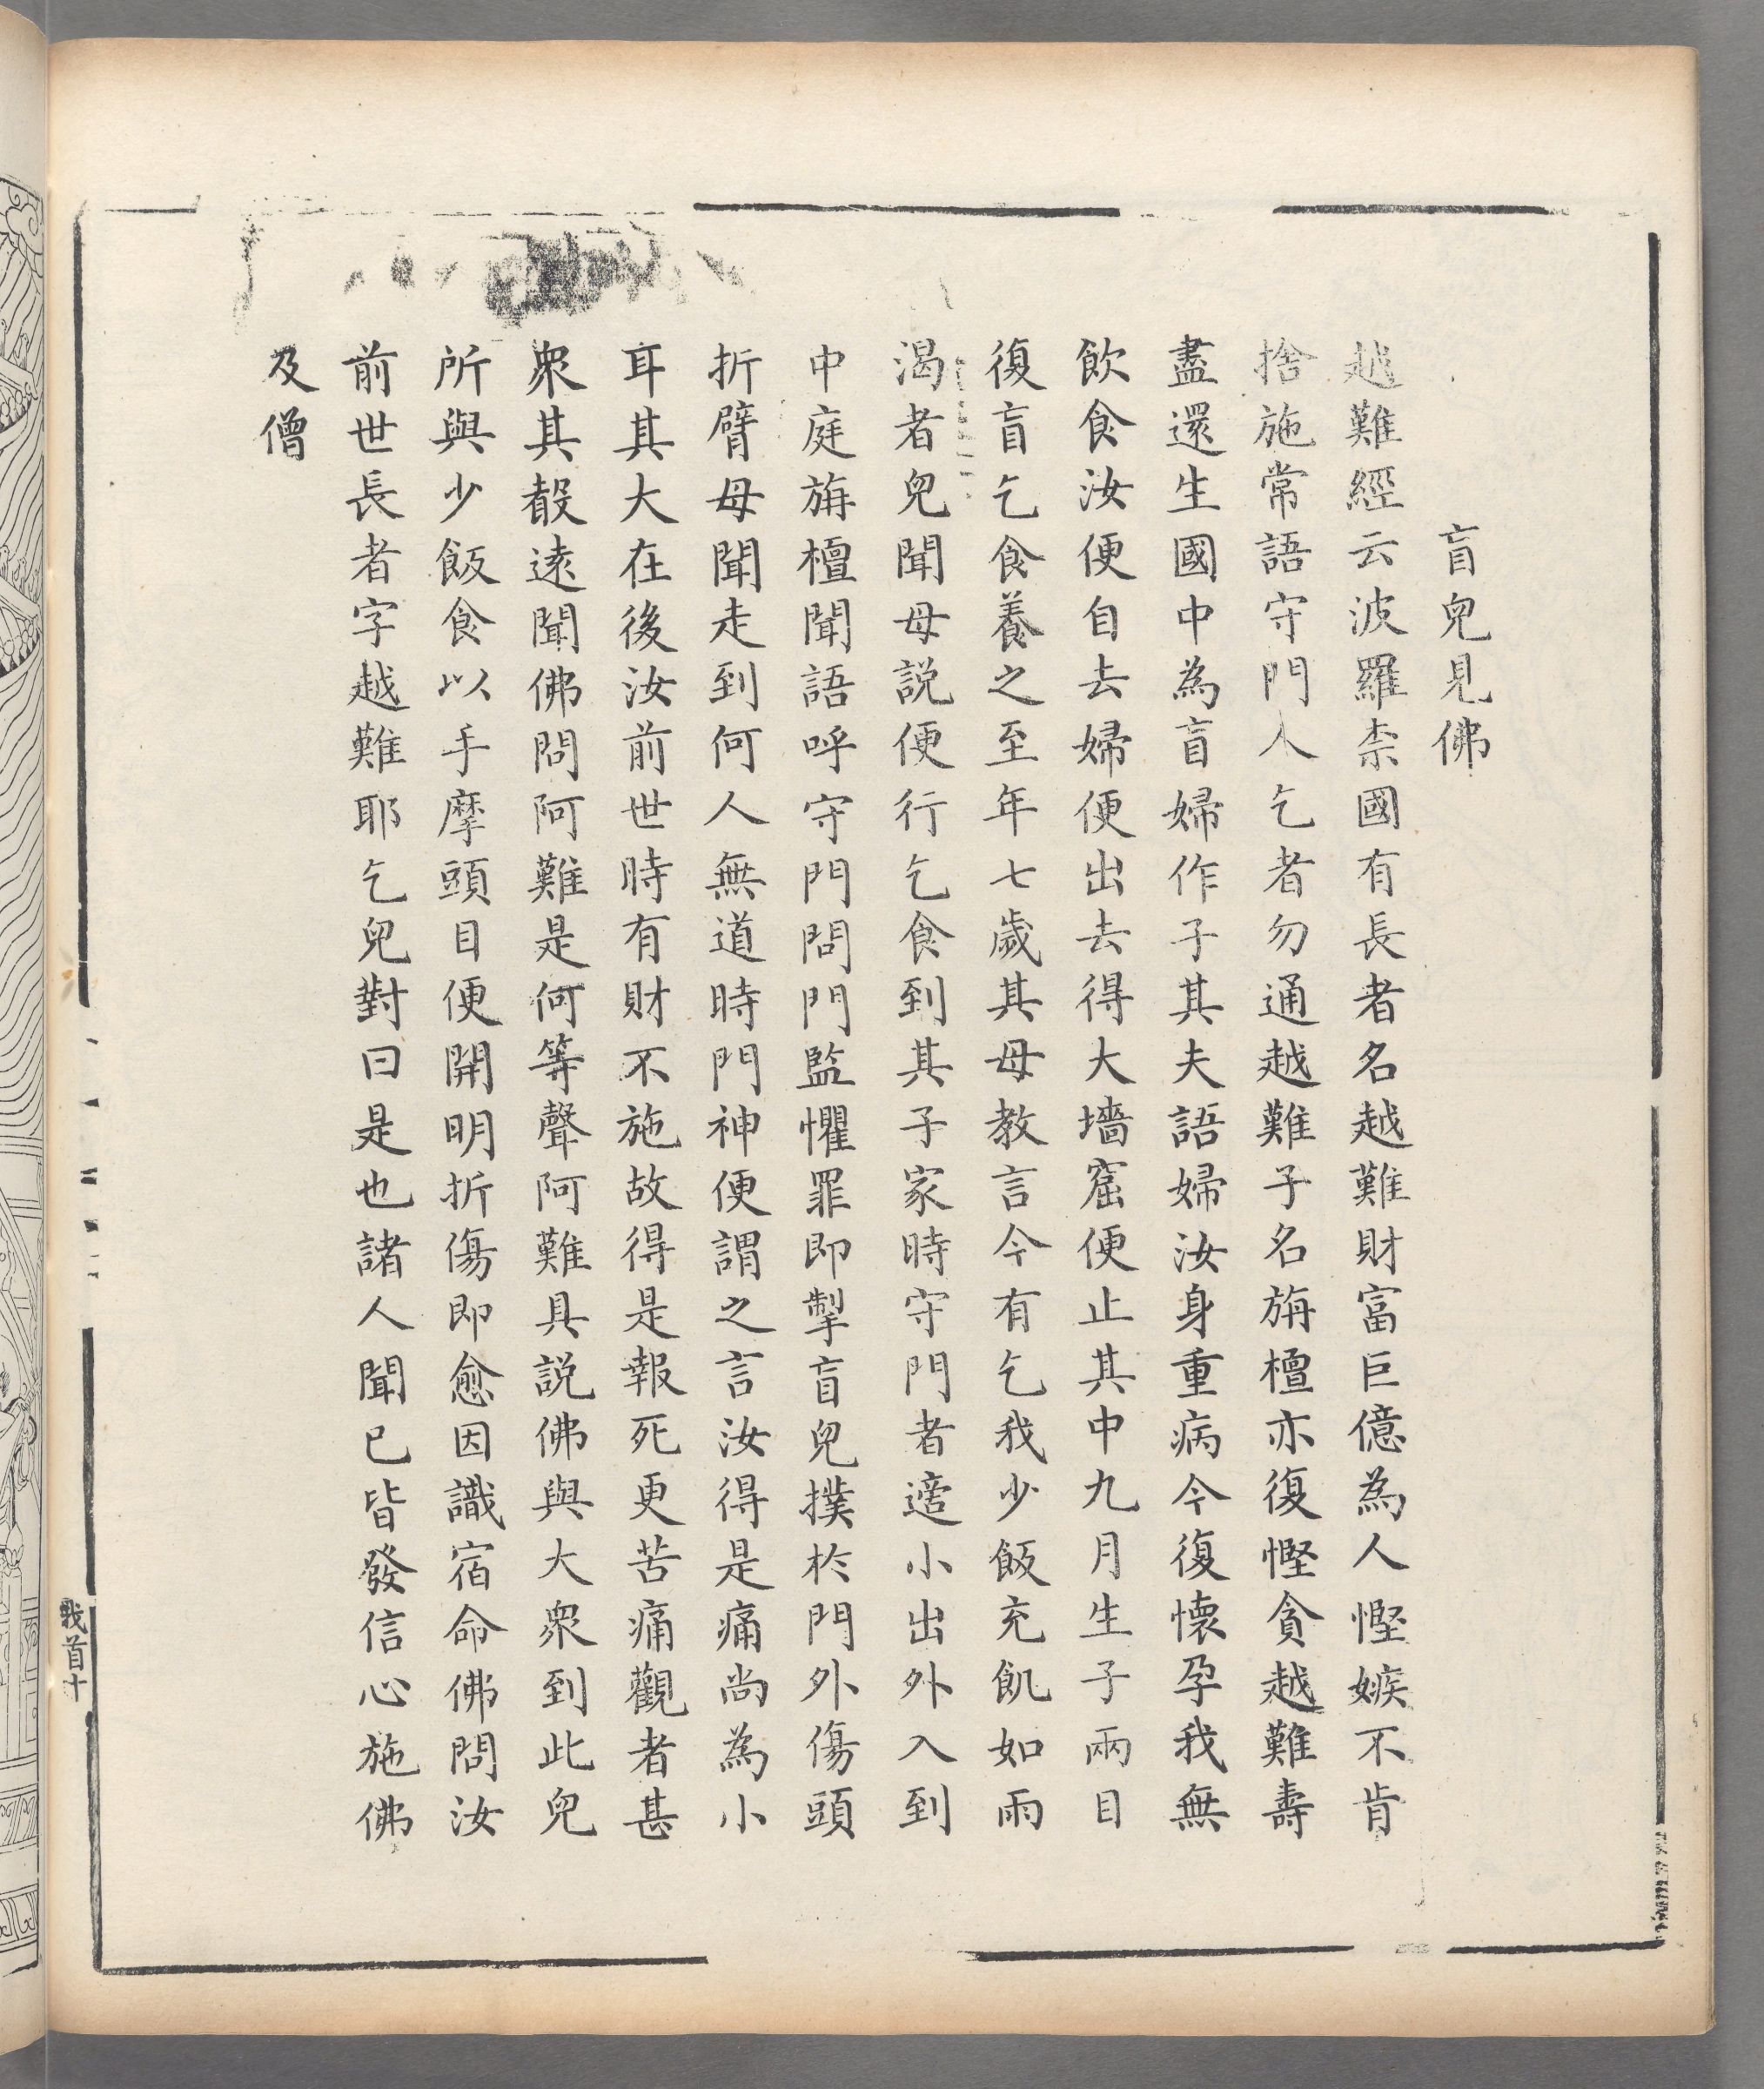 盲兒見佛
越難經云波羅柰國有長者名越難財富巨億為人慳嫉不肯
捨施常語守門人乞者勿通越難子名旃檀亦復慳貪越難壽
盡還生國中為盲婦作子其夫語婦汝身重病今復懷孕我無
飲食汝便自去婦便出去得大墻窟便止其中九月生子兩目
復盲乞食養之至年七歲其母教言今有乞我少飯充飢如雨
渴者兒聞母說便行乞食到其子家時守門者適小出外入到
中庭旃檀聞語呼守門問門監懼罪即掣盲兒撲於門外傷頭
折臂母聞走到何人無道時門神便謂之言汝得是痛尚為小
耳其大在後汝前世時有財不施故得是報死更苦痛觀者甚
眾其聲遠聞佛問阿難是何等聲阿難具說佛與大眾到此兒
所與少飯食以手摩頭目便開明折傷即愈因識宿命佛問汝
前世長者字越難耶乞兒對曰是也諸人聞已皆發信心施佛
及僧